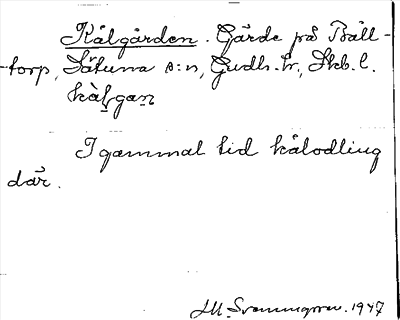 Kålgården. Gärde på Båll-
-torp, Sätuna s:n, Gudh. hr., Skb. l.
kàl̥gan̥
I gammal tid kålodling
där.
1947